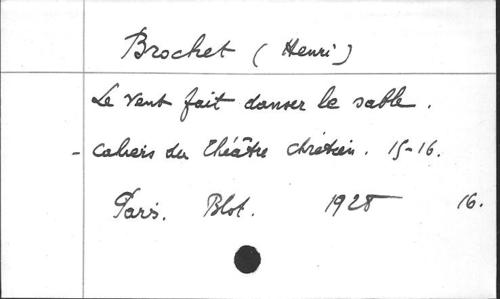 Brochet (Henri)
Le vent fait danser le sable.
- Cahiers du Théâtre chrétien. 15-16.
Paris. Blot. 1928 16.